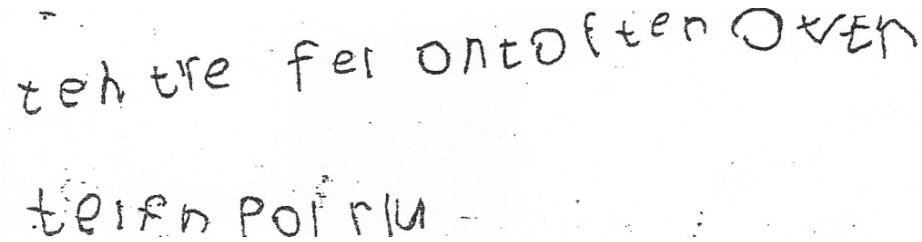 teh tre fei ontoften Oven
teifn poi rlu